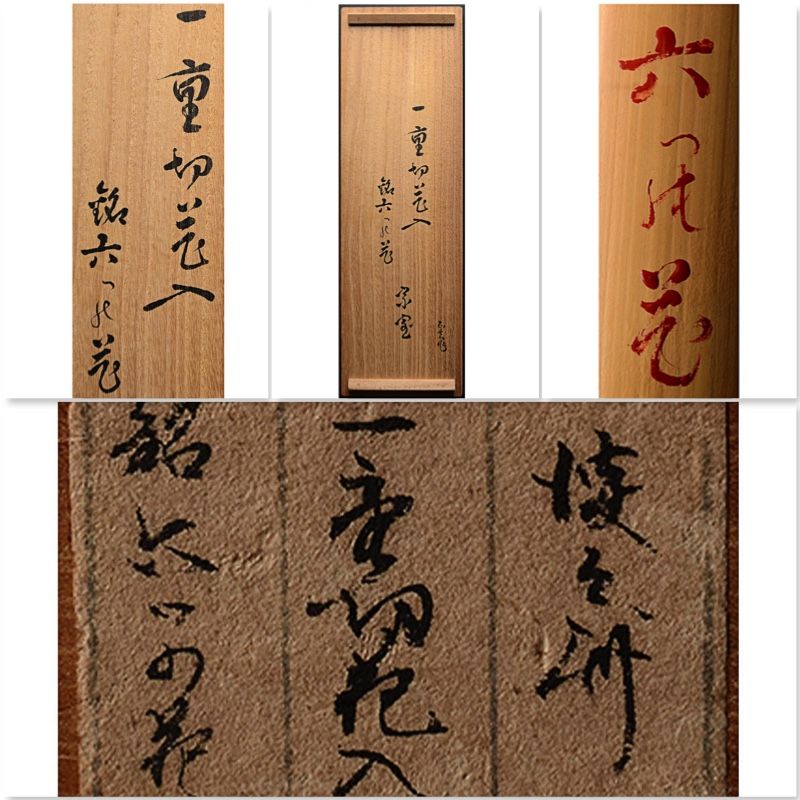 一重切花入
銘六つの花
一重切花入
銘六つの花
宗室
六つの花
一重切花入
銘六つの花